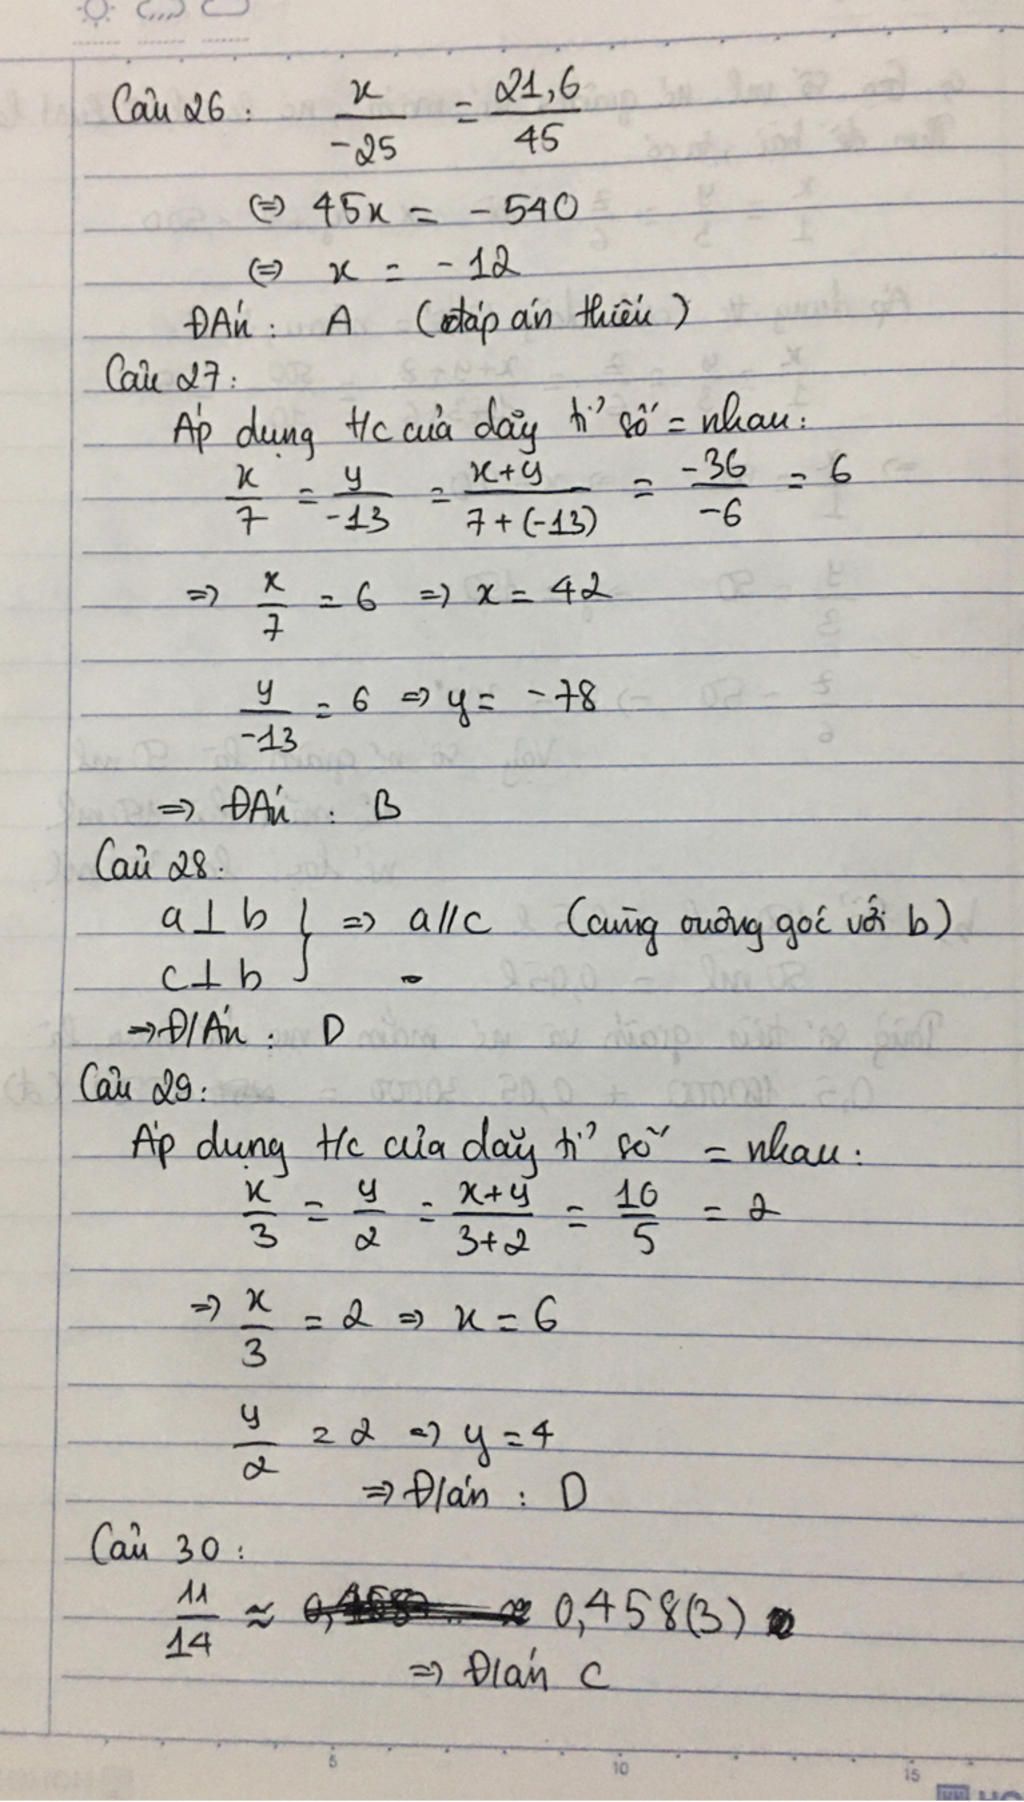 Câu 26 : x/-25 = 21,6/45
⇔ 45x = -540
⇔ x = -12
ĐÁn : A (đáp án thiếu)
Câu 27 :
Áp dụng t/c của dãy tỉ số = nhau :
x/7 = y/-13 = x+y/7+(-13) = -36/-6 = 6
⇒ x/7 = 6 ⇒ x = 42
y/-13 = 6 ⇒ y = -78
⇒ ĐÁn : B
Câu 28 :
a⊥b } ⇒ a//c (cùng vuông góc với b)
c⊥b
⇒ Đ/Án : D
Câu 29 :
Áp dụng t/c của dãy tỉ số = nhau :
x/3 = y/2 = x+y/3+2 = 10/5 = 2
⇒ x/3 = 2 ⇒ x = 6
y/2 = 2 ⇒ y = 4
⇒ Đ/án : D
Câu 30 :
11/14 ≈ 0,458(3)
⇒ Đ/án C
5 10 15